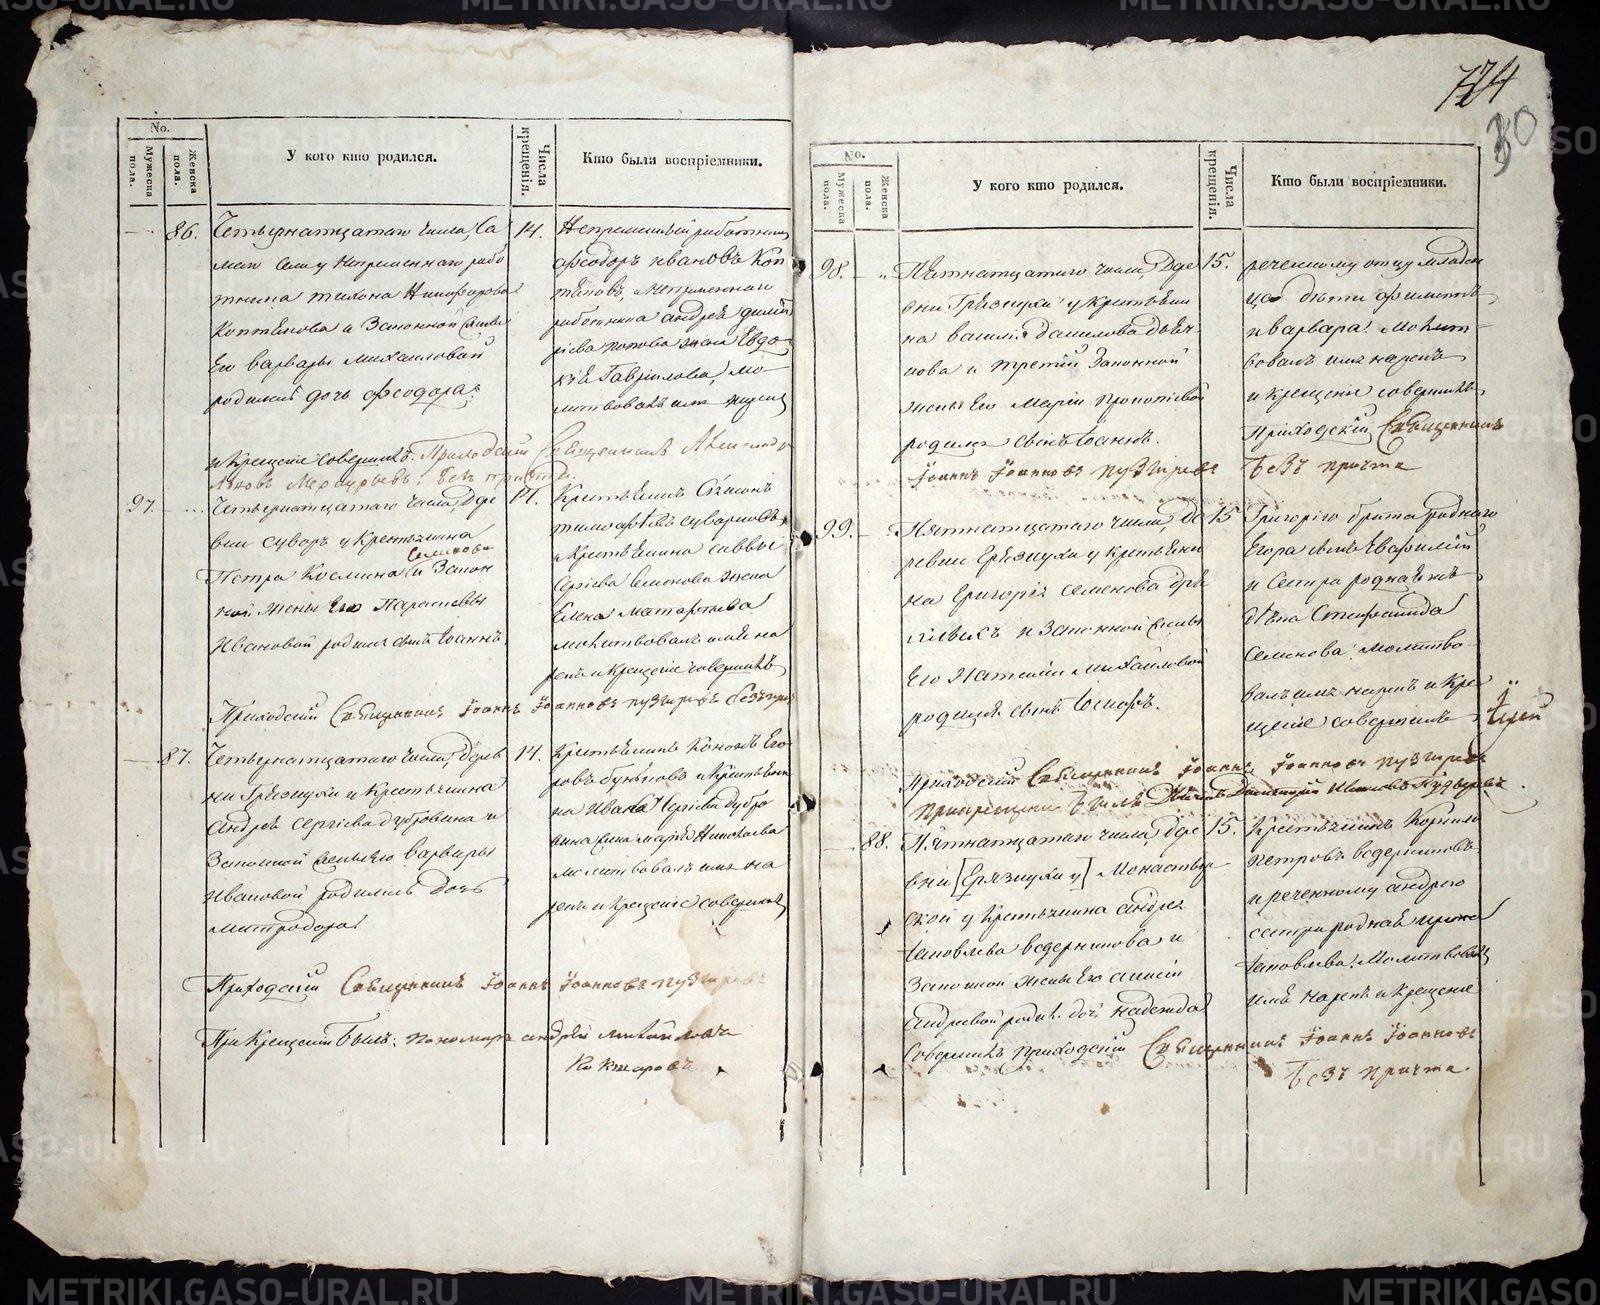 METRIKI.GASO-URAL.RU
724
30
No.
Мужеска пола.
Женска пола.
У кого кто родился.
Числа крещенія.
Кто были воспріемники.
86. Четырнатцатаго числа, Са
мих
Непременнаго рабо
тника тихона Никифорова
Коптелова и Законной
Его варвары Михаиловой
родилась дочь феодора.
14. Непременный работник
феодоръ ивановъ Коп
теловъ, и Непременнаго
работника андрея дмит
ріева попова жена Евдо
кіа Гавріилова, мо
литвовалъ имя нарекъ
и Крещеніе совершилъ. Приходскій Священникъ Александръ
Львовъ Меркурьевъ. безъ причта.
97. Четырнатцатаго числа, Дере
вни Суворъ у Крестьянина
Петра Космина Семенова и Закон
ной жены Его Параскевы
Ивановой родился сынъ Іоаннъ.
14. Крестьянинъ Стефанъ
тимофеевъ
и Крестьянина саввы
Сергіева Семенова жена
Елена
молитвовалъ имя на
рекъ и Крещеніе совершилъ
Приходскій Священникъ Іоаннъ Іоанновъ пузыревъ безъ причта
87. Четырнатцатаго числа, Дерев
ни Грязнухи у Крестьянина
Андрея Сергіева дубровина и
Законной жены Его варвары
Ивановой родилась дочь
митродора
14. Крестьянинъ Кононъ Его
ровъ и Крестьяни
на Ивана Сергіева дубро
вина жена марія Николаева
молитвовалъ имя на
рекъ и Крещеніе совершилъ
Приходскій Священникъ Іоаннъ Іоанновъ пузыревъ
При Крещеніи былъ: пономарь андрей михайловъ
Кокшаровъ
No.
Мужеска пола.
Женска пола.
У кого кто родился.
Числа крещенія.
Кто были воспріемники.
98. Пятнатцатаго числа, Дере
вни Грязнухи у крестьяни
на василія данилова
нова и третій Законной
жены Его Маріи прокопіевой
родился сынъ Іоаннъ.
15. реченному отцу младен
ца дети филиппъ
и варвара. молит
вовалъ имя нарекъ
и крещеніе совершилъ
Приходскій Священникъ
Іоаннъ Іоанновъ пузыревъ безъ причта
99. Пятнатцатаго числа, Де
ревни Грязнухи у крестьяни
на Григорія семенова
и Законной жены
Его Наталіи Михайловой
родился сынъ Іосифъ.
15 Григорію брата роднаго
Егора сынъ Евфимій
и Сестра родная
Стефанида
Семенова. молитво
валъ имя нарекъ и Кре
щеніе совершилъ Іерей
Приходскій Священникъ Іоаннъ Іоанновъ пузыревъ
При крещеніи былъ Дьячекъ Димитрий Ивановъ Пузыревъ
88. Пятнатцатаго числа, Дере
вни [Грязнухи у] Монастыр
ской у Крестьянина андрея
Іаковлева ведерникова и
Законной жены Его
Андреевой родил. дочь надежда
15. Крестьянинъ Корнило
петровъ ведерниковъ
и реченному андрею
сестра родная
Іаковлева. Молитвовалъ
имя нарекъ и Крещеніе
Совершилъ приходскій Священникъ Іоаннъ Іоанновъ
безъ причта.